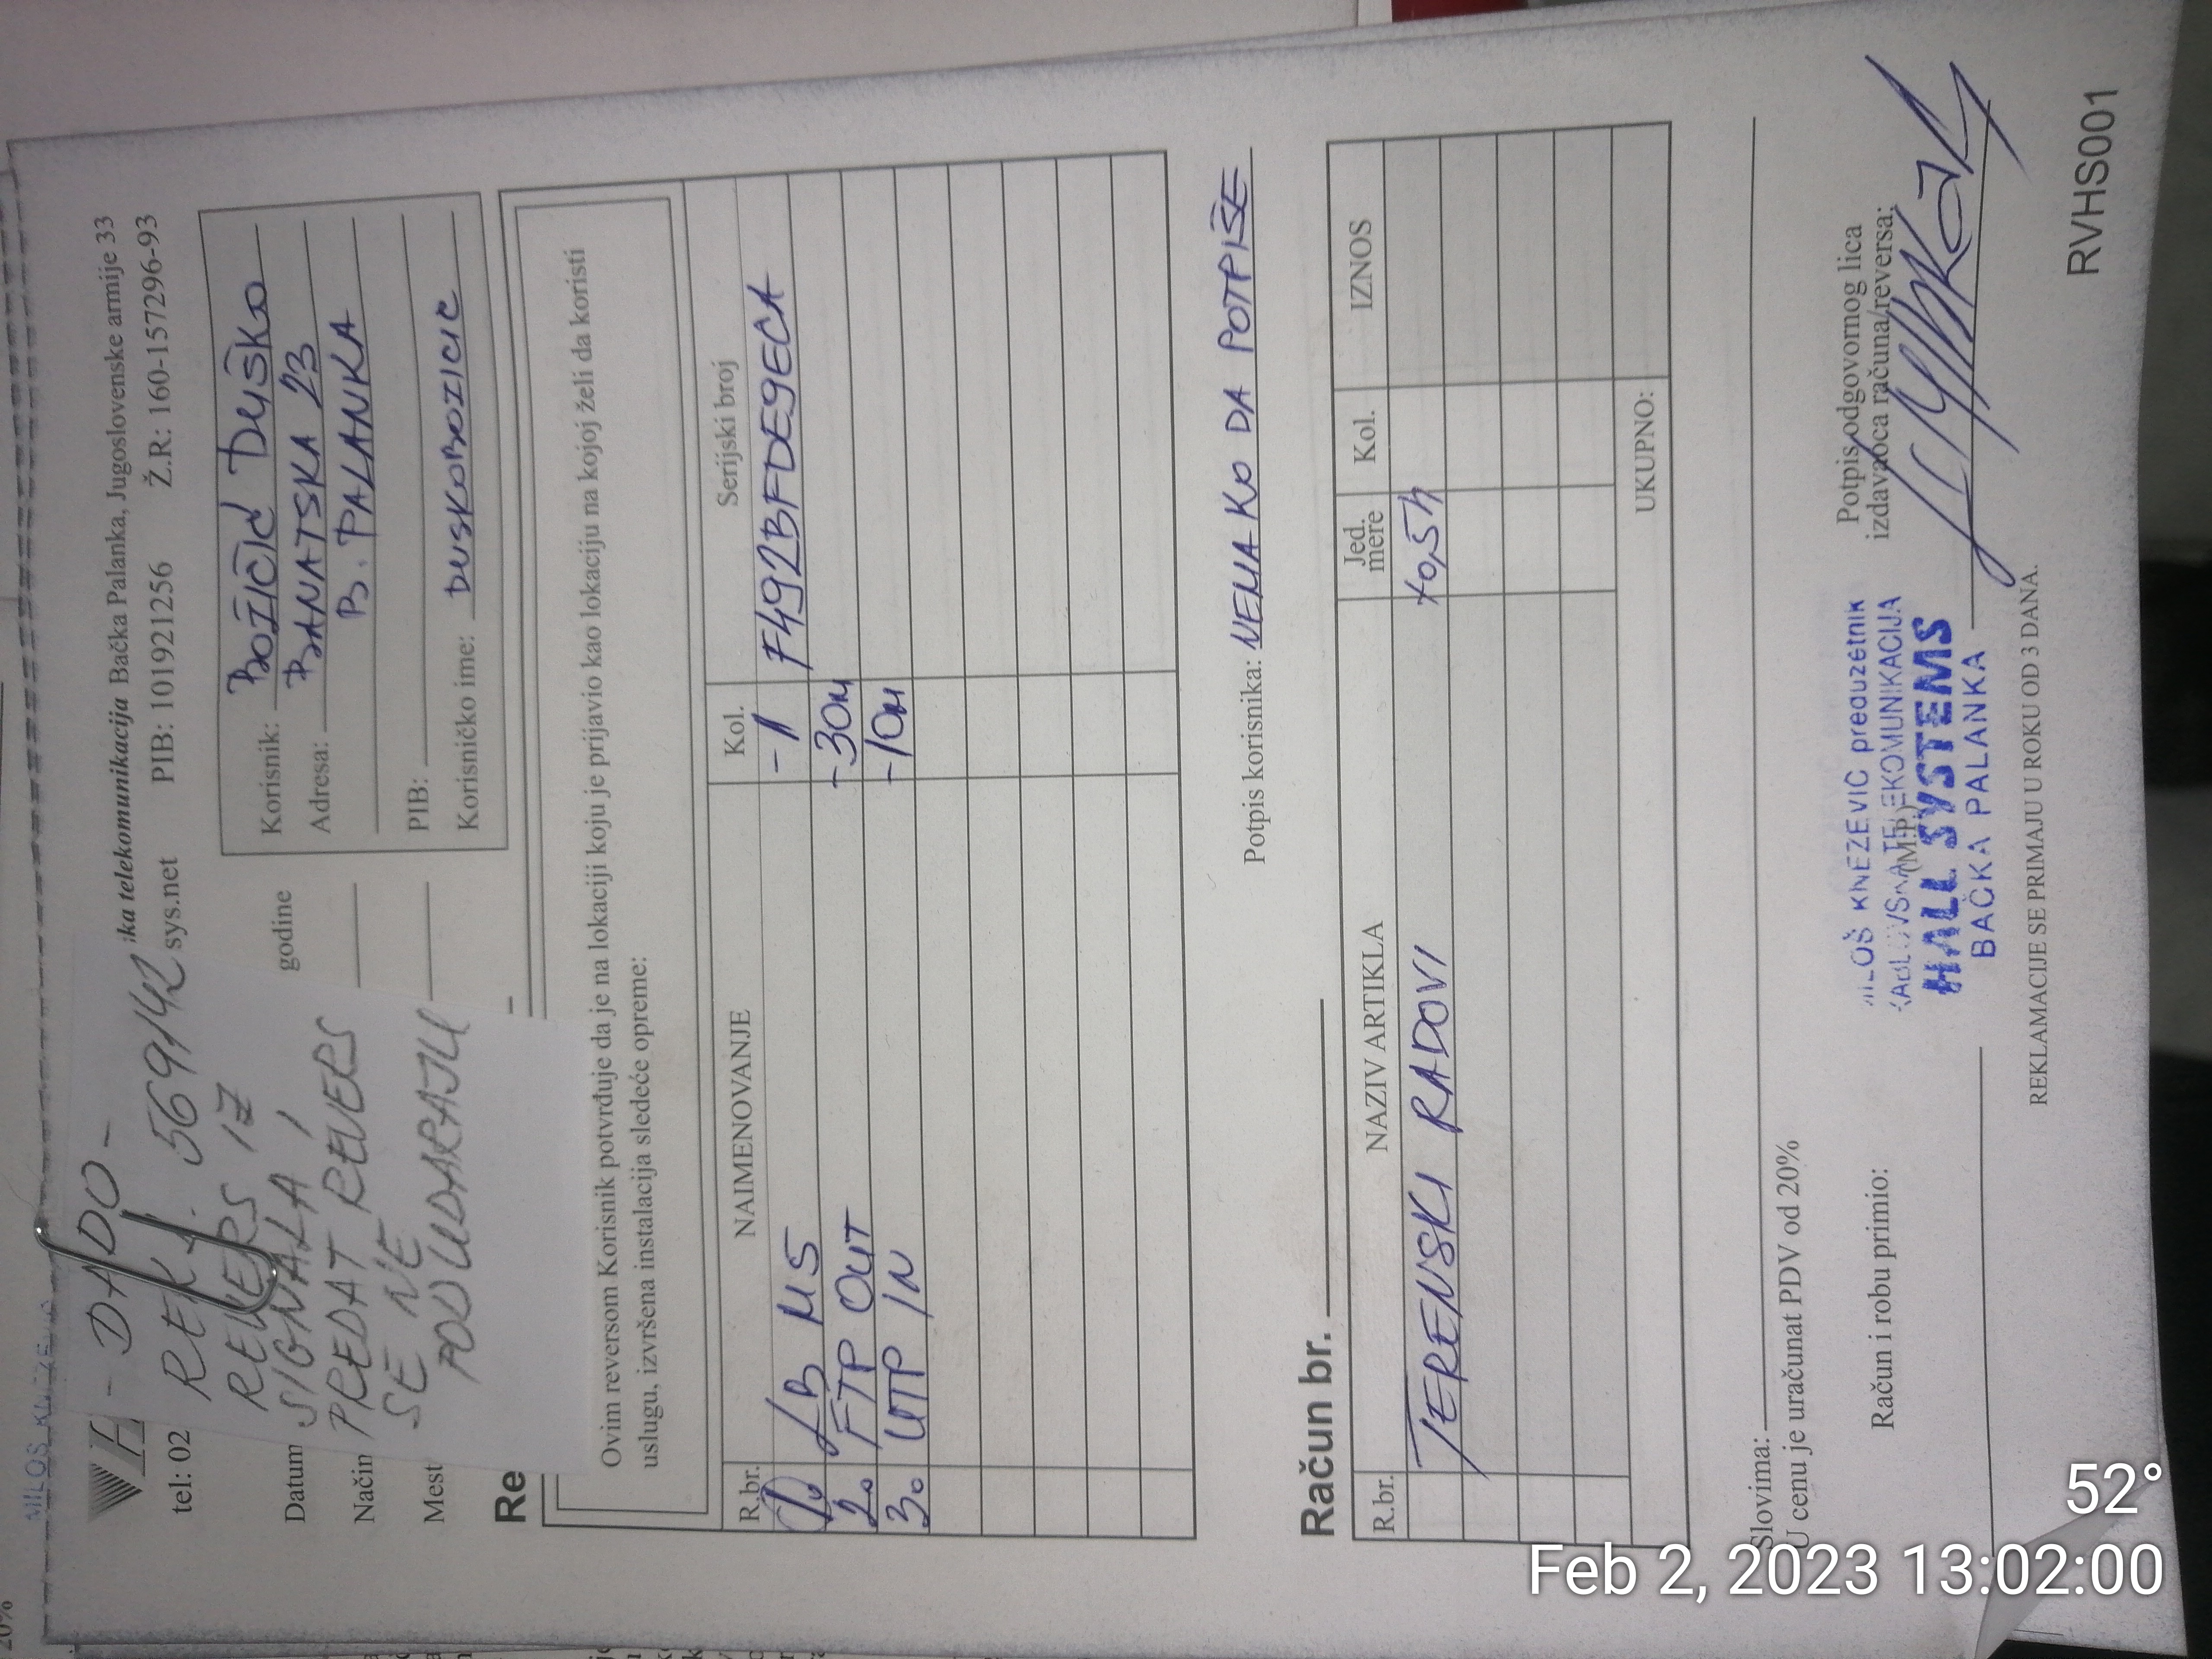 - DADO -
REKL. 569/42
REVERS IZ
SIGNALA I
PREDAT REVERS
SE NE
PODUDARAJU
ika telekomunikacija Bačka Palanka, Jugoslovenske armije 33
tel: 02
sys.net PIB: 101921256 Ž.R: 160-157296-93
Datum
godine
Način
Mest
Korisnik: BOŽIČIĆ DUŠKO
Adresa: BANATSKA 23
B. PALANKA
PIB:
Korisničko ime: DUSKOBOZICIC
Re
Ovim reversom Korisnik potvrđuje da je na lokaciji koju je prijavio kao lokaciju na kojoj želi da koristi
uslugu, izvršena instalacija sledeće opreme:
R.br. NAIMENOVANJE Kol. Serijski broj
1. LB M5 -1 F492BFDE9ECA
2. FTP OUT -30m
3. UTP IN -10m
Potpis korisnika: NEMA KO DA POTPIŠE
Račun br.
R.br. NAZIV ARTIKLA Jed. mere Kol. IZNOS
TERENSKI RADOVI x0,5h
UKUPNO:
Slovima:
U cenu je uračunat PDV od 20%
Račun i robu primio:
MILOŠ KNEZEVIC preduzetnik
KABLOVSKA TELEKOMUNIKACIJA
(M.P.)
HALL SYSTEMS
BAČKA PALANKA
Potpis odgovornog lica
izdavaoca računa/reversa:
REKLAMACIJE SE PRIMAJU U ROKU OD 3 DANA.
RVHS001
52°
Feb 2, 2023 13:02:00